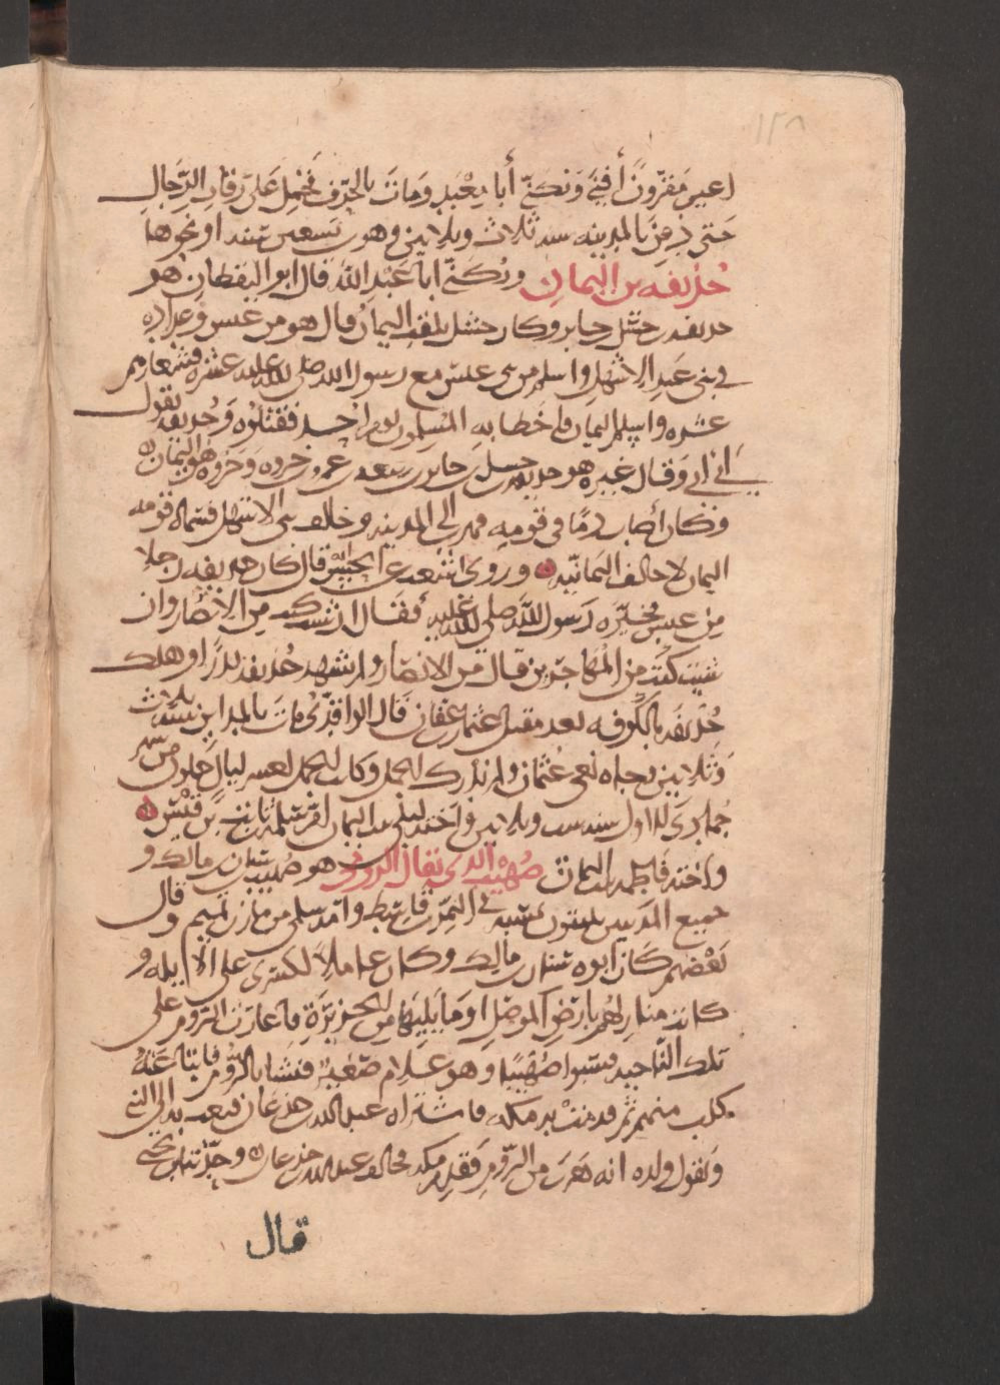 ١٢٨
اعين مقرونًا أفنى ونكنى أبا معبد ومات بالجرف فحمل على رقاب الرجال
حتى دفن بالمدينه سنه ثلاث وثلاثين وهو بن سبعين سنه او نحوها
حذيفه بن اليمان ويكنى ابا عبد الله قال ابو اليقظان هو
حذيفه بن حسل بن جابر وكان حسل يلقب اليمان قال هو من عبس وعداده
في بني عبد الاشهل واسلم من بني عبس مع رسول الله صلى الله عليه عشره فشعارهم
عشره واسلم اليمان فاخطا به المسلمون يوم احد فقتلوه وحذيفه يقول
أبي أبي وقال غيره هو حذيفه بن حسل بن جابر بن ربيعه بن عمرو بن جروه وجروه هو اليمان
وكان أصاب دمًا في قومه فهرب الى المدينه وخالف بني الاشهل فسماه قومه
اليمان لانه حالف اليمانيه وروى اشعث عن الحسن قال كان حذيفه رجلا
من عبس فخيره رسول الله صلى الله عليه فقال ان شئت كنت من الانصار وان
شئت كنت من المهاجرين قال من الانصار ولم يشهد حذيفه بدرا وهلك
حذيفه بالكوفه بعد مقتل عثمان بن عفان قال الواقدي مات بالمداين سنه ست
وثلاثين وجاه نعي عثمان ولم يدرك الجمل وكانت الجمل لعشر ليال خلون من شهر
جمادى الاول سنه ست وثلاثين واخته ليلى بنت اليمان ام سلمه بن ثابت بن قيس
واخته فاطمه بنت اليمان صهيب الذي يقال الرومي هو صهيب بن سنان بن مالك و
جميع المدنيين يثبتون نسبه في النمر بن قاسط وامه سلمى من مازن تميم وقال
بعضهم كان ابوه سنان بن مالك وكان عاملاً لكسرى على الابله و
كانت منازلهم بارض الموصل او ما يليها من الجزيرة فاغارت الروم على
تلك الناحيه فسبوا صهيبًا وهو غلام صغير فنشا بالروم فابتاعته
كلب منهم ثم قدمت به مكه فاشتراه عبد الله بن جدعان فبعث به الى النبي
ويقول ولده انه هرب من الروم فقدم مكه فحالف عبد الله بن جدعان
قال